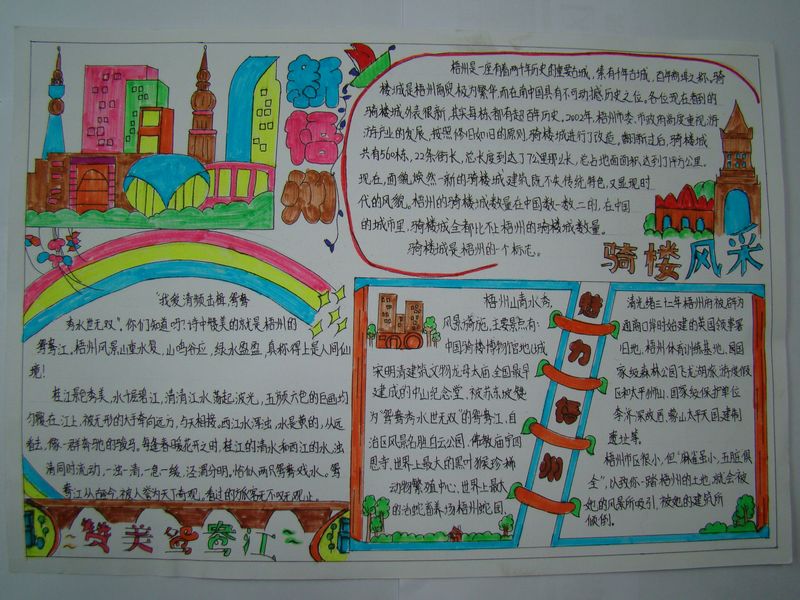 新梧州
梧州是一座有着两千年历史的重要古城,素有千年古城,百年商埠之称。骑
楼城是梧州商贸极为繁华,而在南中国具有不可动摇历史之位,各位现在看到的
骑楼城外表很新,其实每栋都有超百年历史,2002年,梧州市委,市政府高度重视游
游产业的发展,按照修旧如旧的原则,骑楼城进行了改造,翻新过后,骑楼城
共有560栋,22条街长,总长度到达了7公里那么长,总占地面面积达到了1平方公里。
现在,面貌焕然一新的骑楼城建筑既不失传统特色,又显现时
代的风貌,梧州的骑楼城数量在中国数一数二的,在中国
的城市里,骑楼城全都比不上梧州的骑楼城数量。
骑楼城是梧州的一个标志。
骑楼风采
"我爱清频击楫,鸳鸯
秀水世无双",你们知道吗?诗中赞美的就是梧州的
鸳鸯江,梧州风景山重水复,山鸣谷应,绿水盈盈,真称得上是人间仙
境!
桂江轻吟秀美,水千层碧江,清清江水荡起波光,五颜六色的自画均
匀覆在江上,被无形的大手奇向远方,与天相接。西江水浑浊,水是黄的,从远
看去,像一群奔驰的骏马。每逢春暖花开之时,桂江的清水和西江的水,浊
清同时流动,一浊一清,一急一缓,泾渭分明,恰似两只鸳鸯戏水。鸳
鸯江从古至今,被人誉为天下奇观,看过的旅客无不叹无观止。
赞美鸳鸯江
梧州山青水秀,
风景猗旎,主要景点有:
中国骑楼博物馆地以城
宋明清建筑文物龙母太庙全国最早
建成的中山纪念堂,被苏东坡赞
为"鸳鸯秀水世无双"的鸳鸯江,自
治区风景名胜白云公园,佛教庙宇四
恩寺,世界上最大的黑叶猴珍稀
动物繁殖中心,世界上最大
的治蛇畜养场梧州蛇园,
魅力梧州
清光绪二十三年梧州府被辟为
通商口岸时始建的英国领事署
旧地,梧州体育训练基地,国
家级森林公园飞龙湖旅游度假
区和太平狮山,国家级保护单位
李济深故居,蒙山太平天国建制
遗址等。
梧州市区很小,但"麻雀虽小,五脏俱
全",以致你一踏梧州的土地,就会被
她的风景所吸引,被她的建筑所
倾倒。